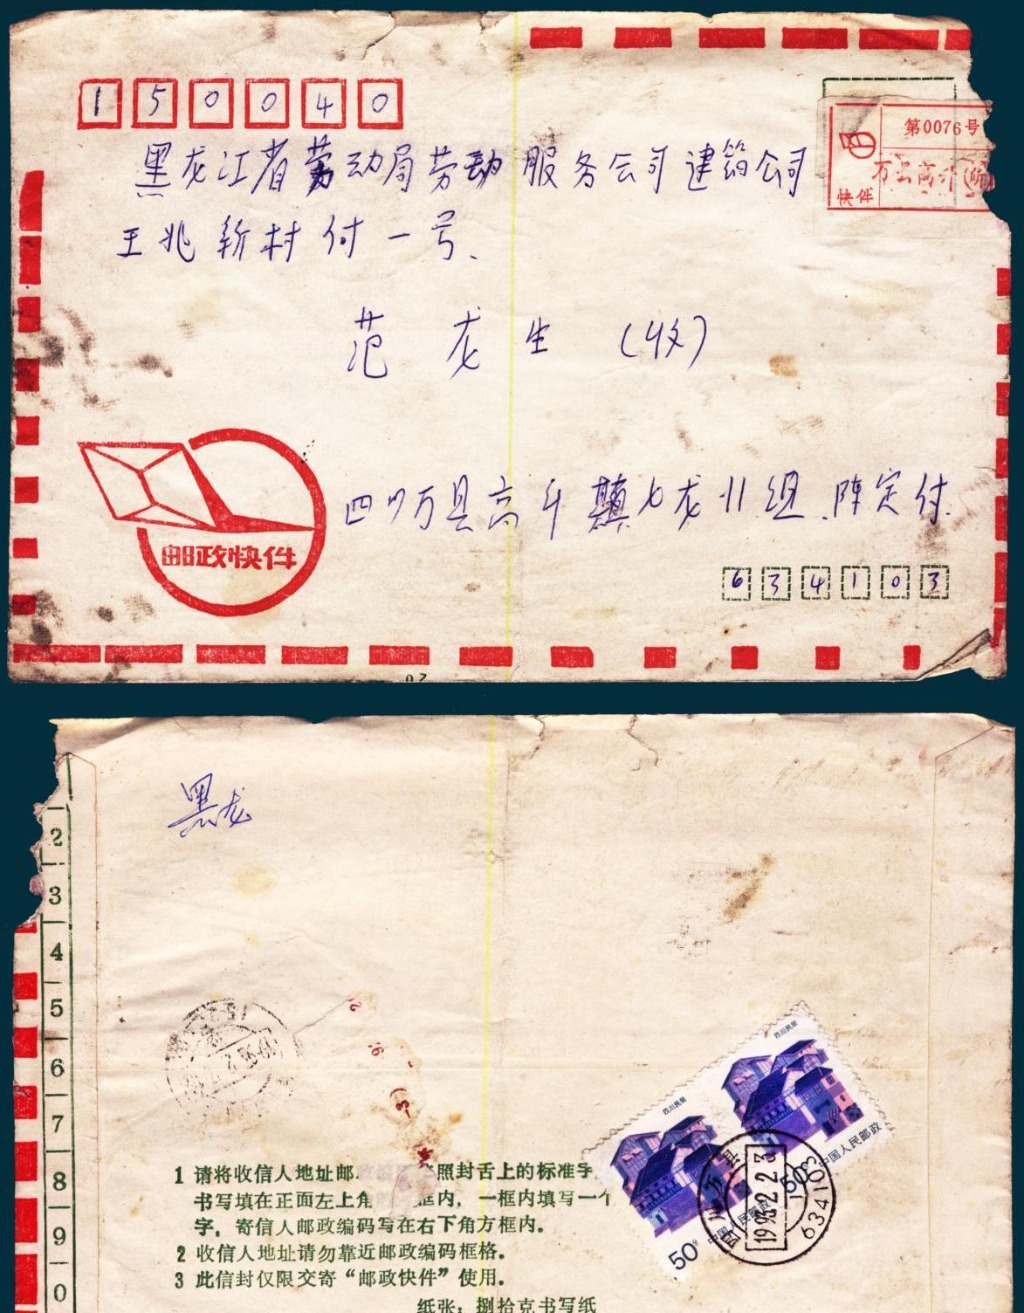 150040
黑龙江省劳动局劳动服务公司建筑公司
王兆新村付一号、
范龙生(收)
第0076号
快件
邮政快件
四川万县高斗镇七龙11组、陈定付
634103
黑龙
2
3
4
5
6
7
8
9
0
1 请将收信人地址邮
照封舌上的标准字
书写填在正面左上角
框内,一框内填写一个
字,寄信人邮政编码写在右下角方框内。
2 收信人地址请勿靠近邮政编码框格。
3 此信封仅限交寄“邮政快件”使用。
纸张:捌拾克书写纸
四川民居
中国人民邮政
50分
四川民居
中国人民邮政
50分
四川万县
1993.2.23
634103